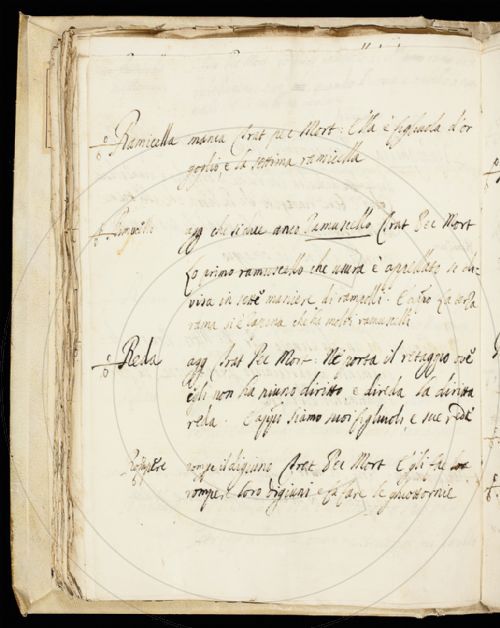 Ramicella manca Trat pec Mort: Ella è figliuola d'or
goglio, e la settima ramicella
agg che si dice anco Ramuscello Trat Pec Mort
Lo primo ramuscello che usura è appellato se di
visa in sette maniere di
rama si è che ha molti ramuscelli
Reda agg Trat Pec Mor: Nè porta il retaggio ov'
egli non ha niuno diritto, e direda la diritta
reda. E appo siamo suoi figliuoli, e sue rede
rompe il digiuno Trat Pec Mort Egli fae
rompere loro digiuni e fa fare le ghiottornie